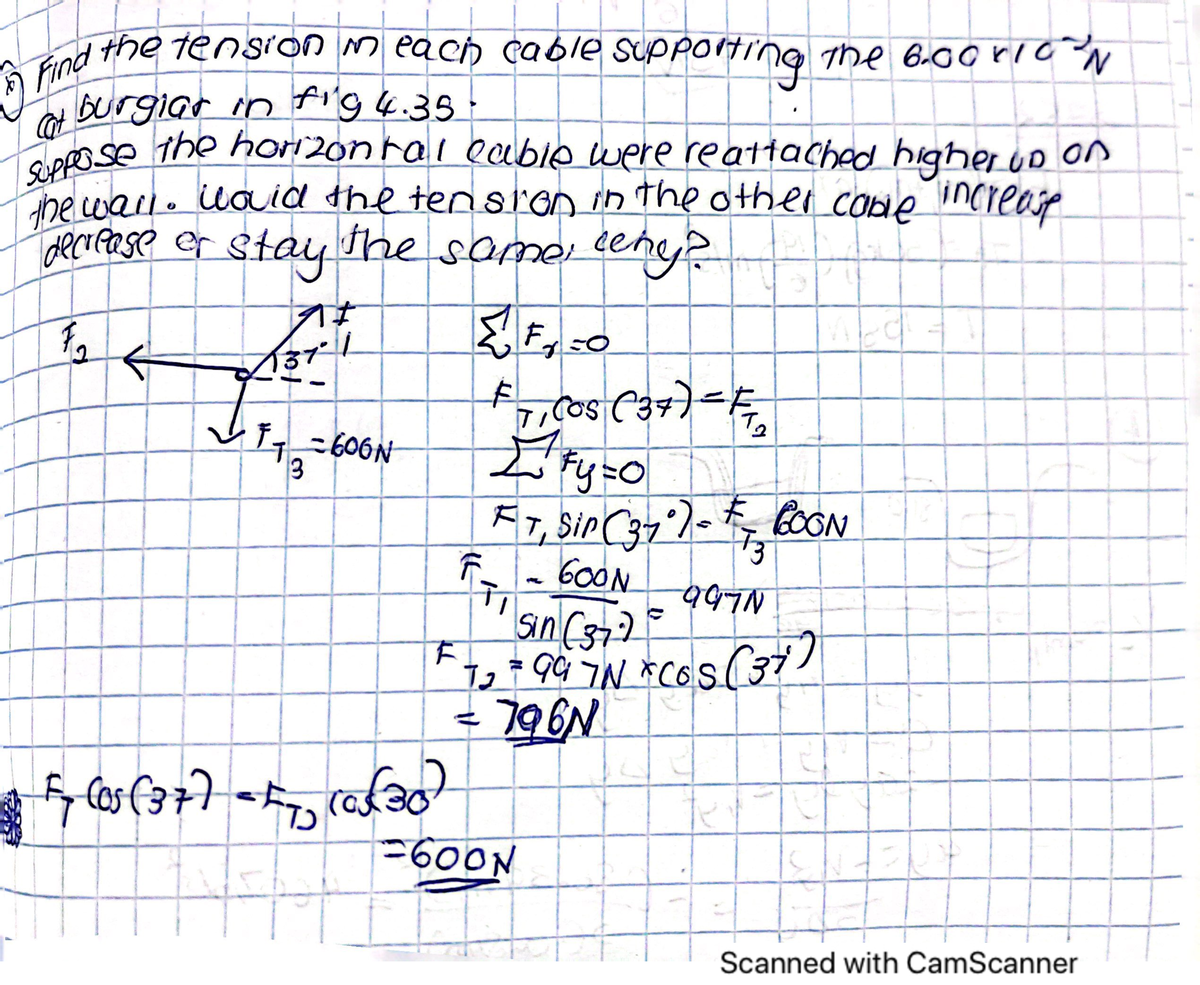 Find the tension in each cable supporting the 6.00 x 10² N
cat burglar in fig 4.35.
suppose the horizontal cable were reattached higher up on
the wall. Would the tension in the other cable increase
decrease or stay the same, why?
F₂
37°
F_T₃ = 600N
Σ Fₓ = 0
F_T₁ cos (37) = F_T₂
Σ Fy = 0
F_T₁ sin (37°) = F_T₃ 600N
F_T₁ = 600N / sin (37°) = 997N
F_T₂ = 997N × cos (37°)
= 796N
F_T cos (37) = F_T₂ cos (30)
= 600N
Scanned with CamScanner